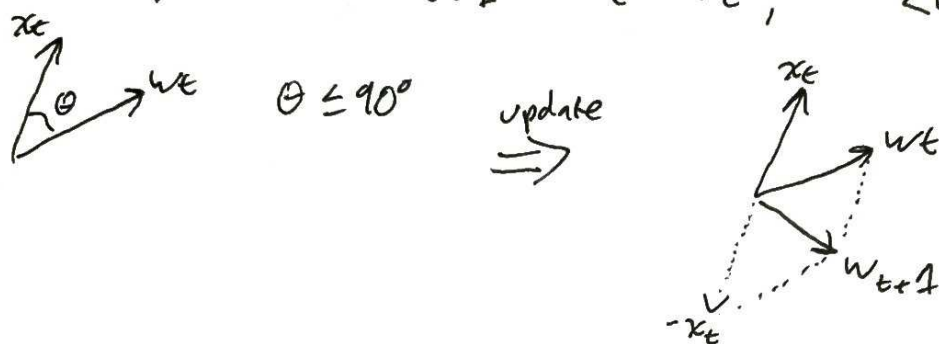 x_t
w_t
θ
θ ≤ 90°
update
⇒
x_t
w_t
w_{t+1}
-x_t